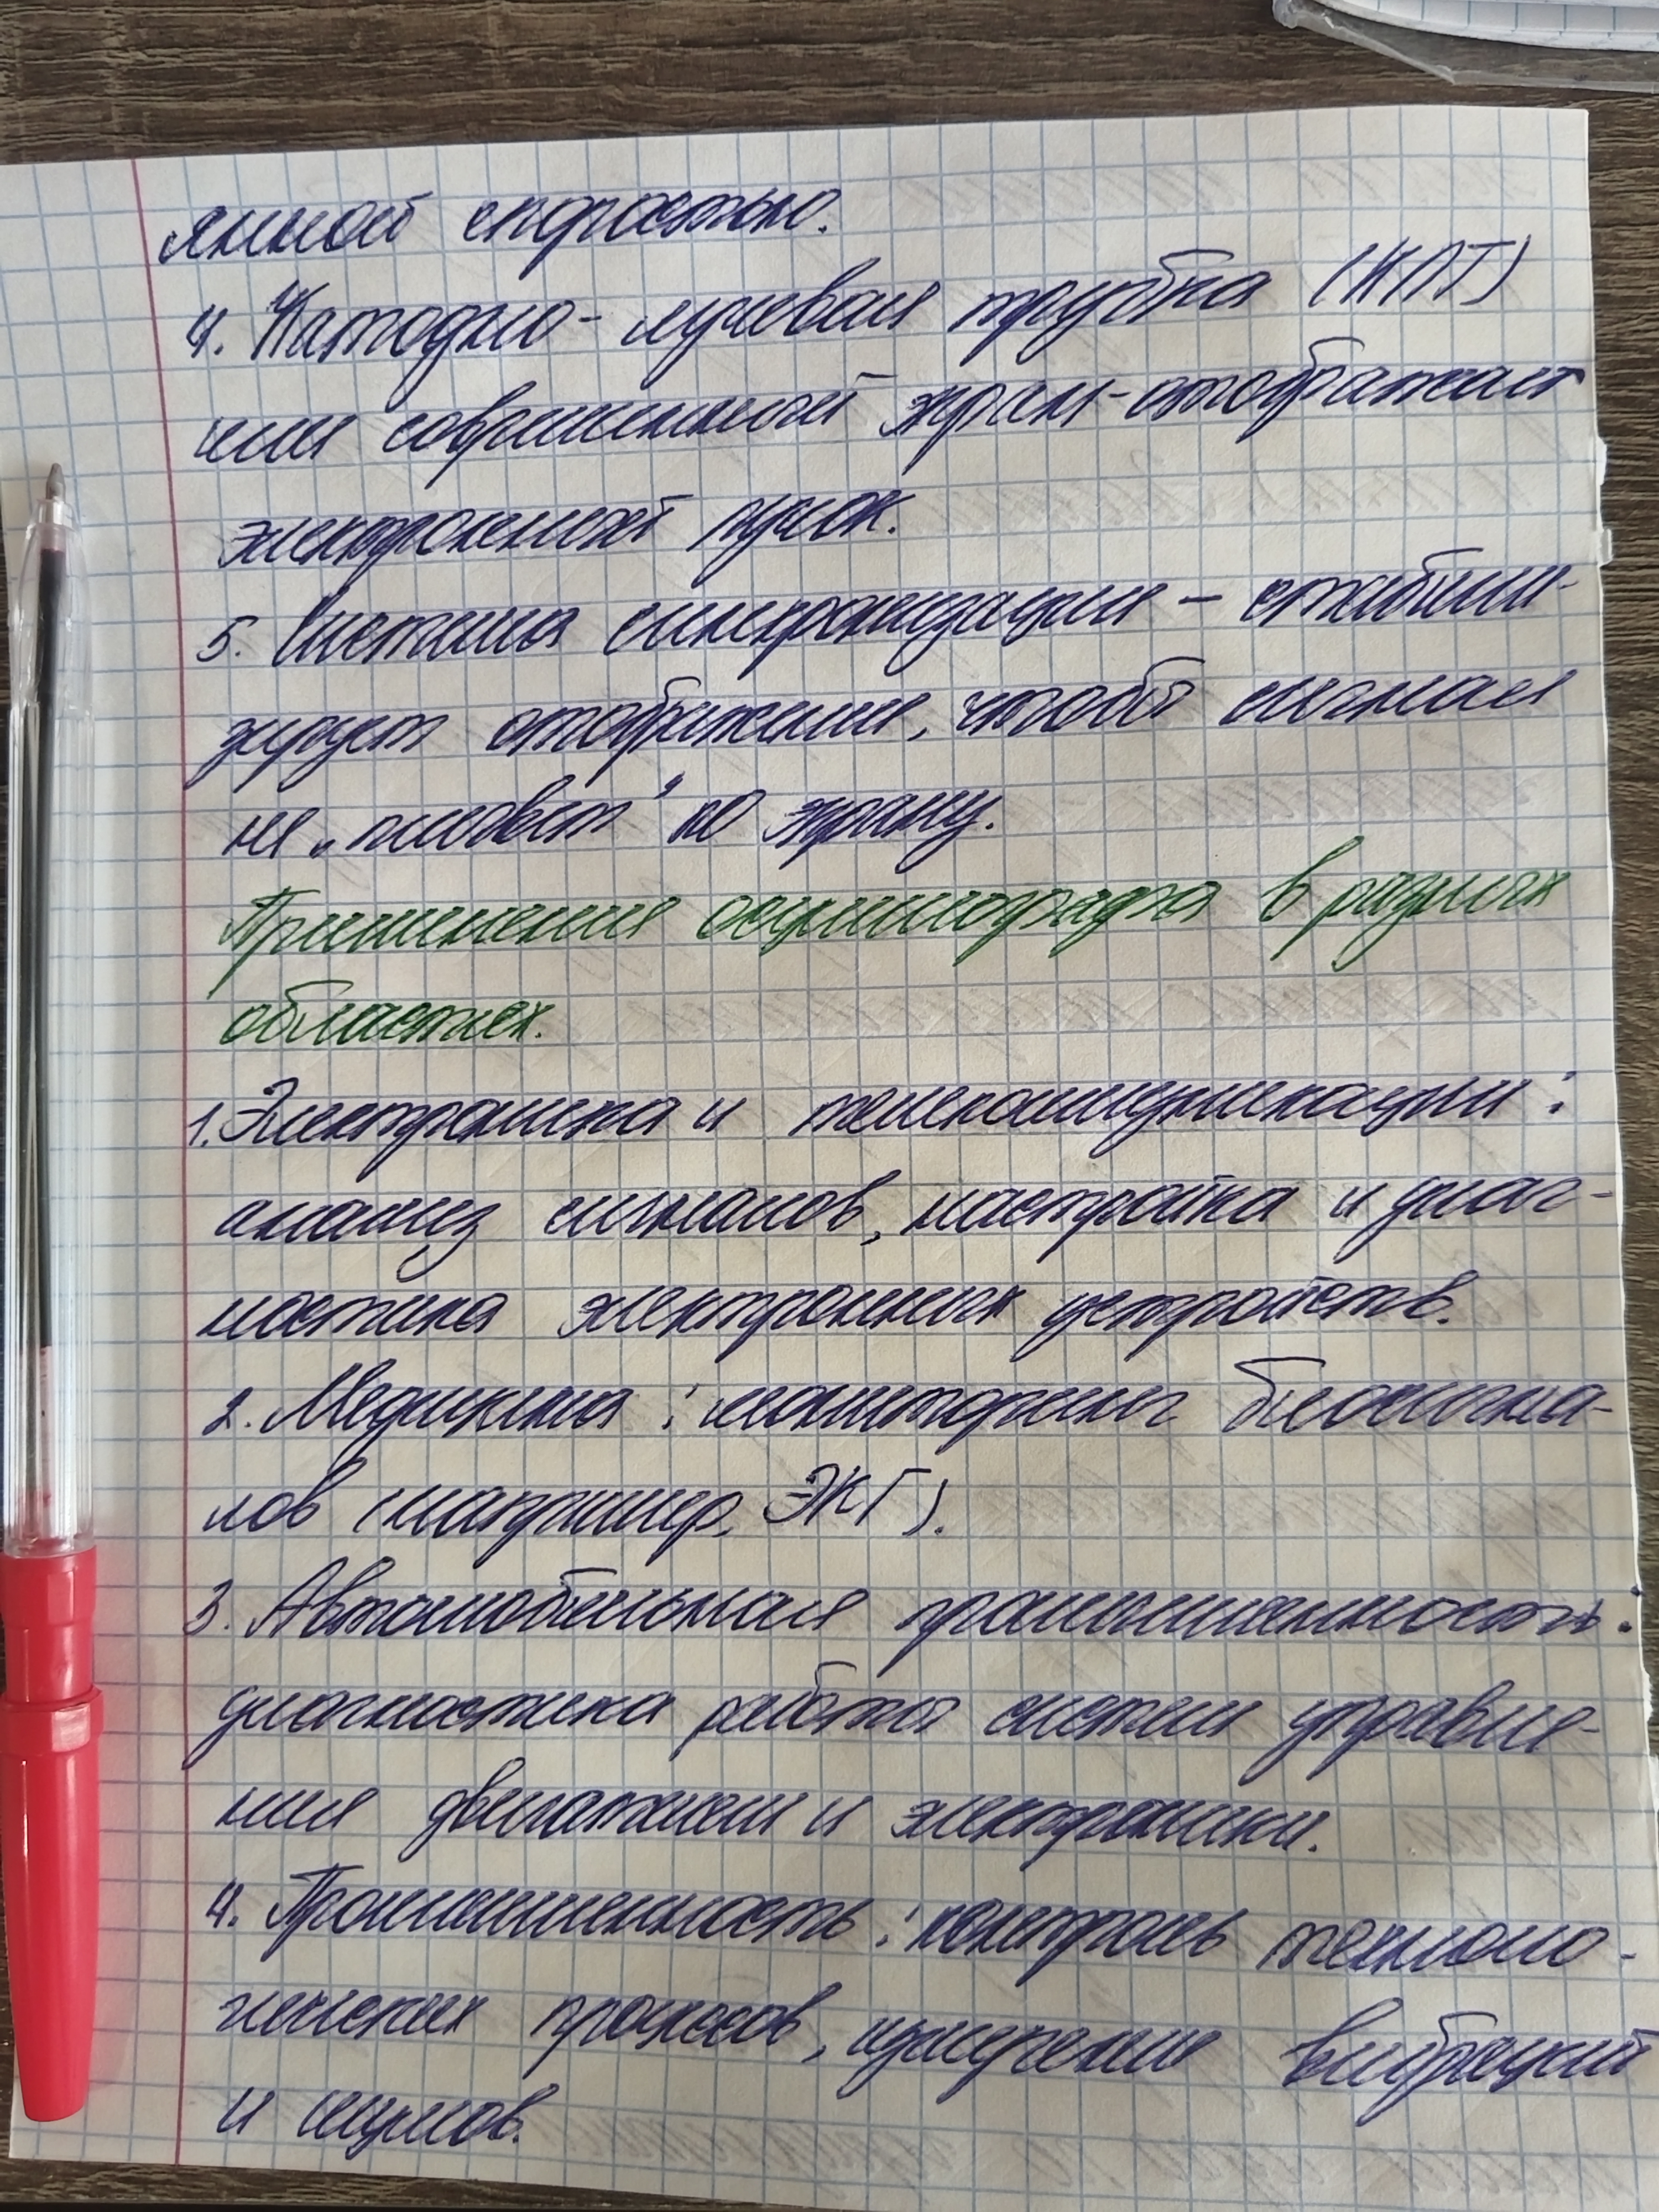 янной скоростью.
4. Катодно-лучевая трубка (КЛТ)
или современный экран-отображает
электронный пучок.
5. Система синхронизации – стабили-
зирует отображение, чтобы сигнал
не „плывёт" по экрану.
Применение осциллографа в разных
областях.
1. Электроника и телекоммуникации:
анализ сигналов, настройка и диаг-
ностика электронных устройств.
2. Медицина: мониторинг биосигна-
лов (например, ЭКГ).
3. Автомобильная промышленность:
диагностика работы систем управле-
ния двигателем и электроники.
4. Промышленность: контроль техноло-
гических процессов, измерение вибраций
и шумов.